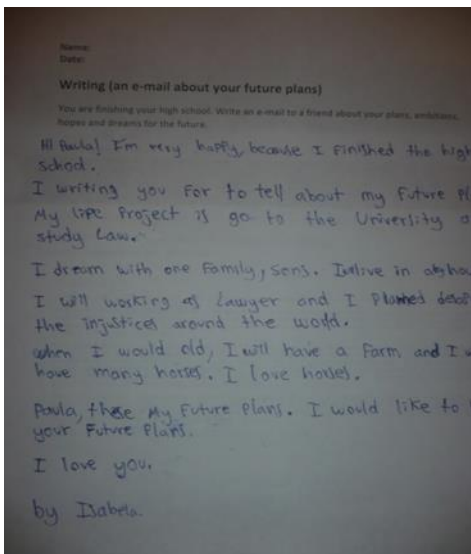 Name:
Date:
Writing (an e-mail about your future plans)
You are finishing your high school. Write an e-mail to a friend about your plans, ambitions,
hopes and dreams for the future.
Hi Paula! I'm very happy, because I finished the high
school.
I writing you for to tell about my future
My life Project is go to the University
study Law.
I dream with one family, sons. live in
I will working as Lawyer and I planned
the injustices around the world.
when I would old, I will have a farm and I
have many horses. I love horses.
Paula, these My Future Plans. I would like to
your Future Plans.
I love you.
by Isabela.